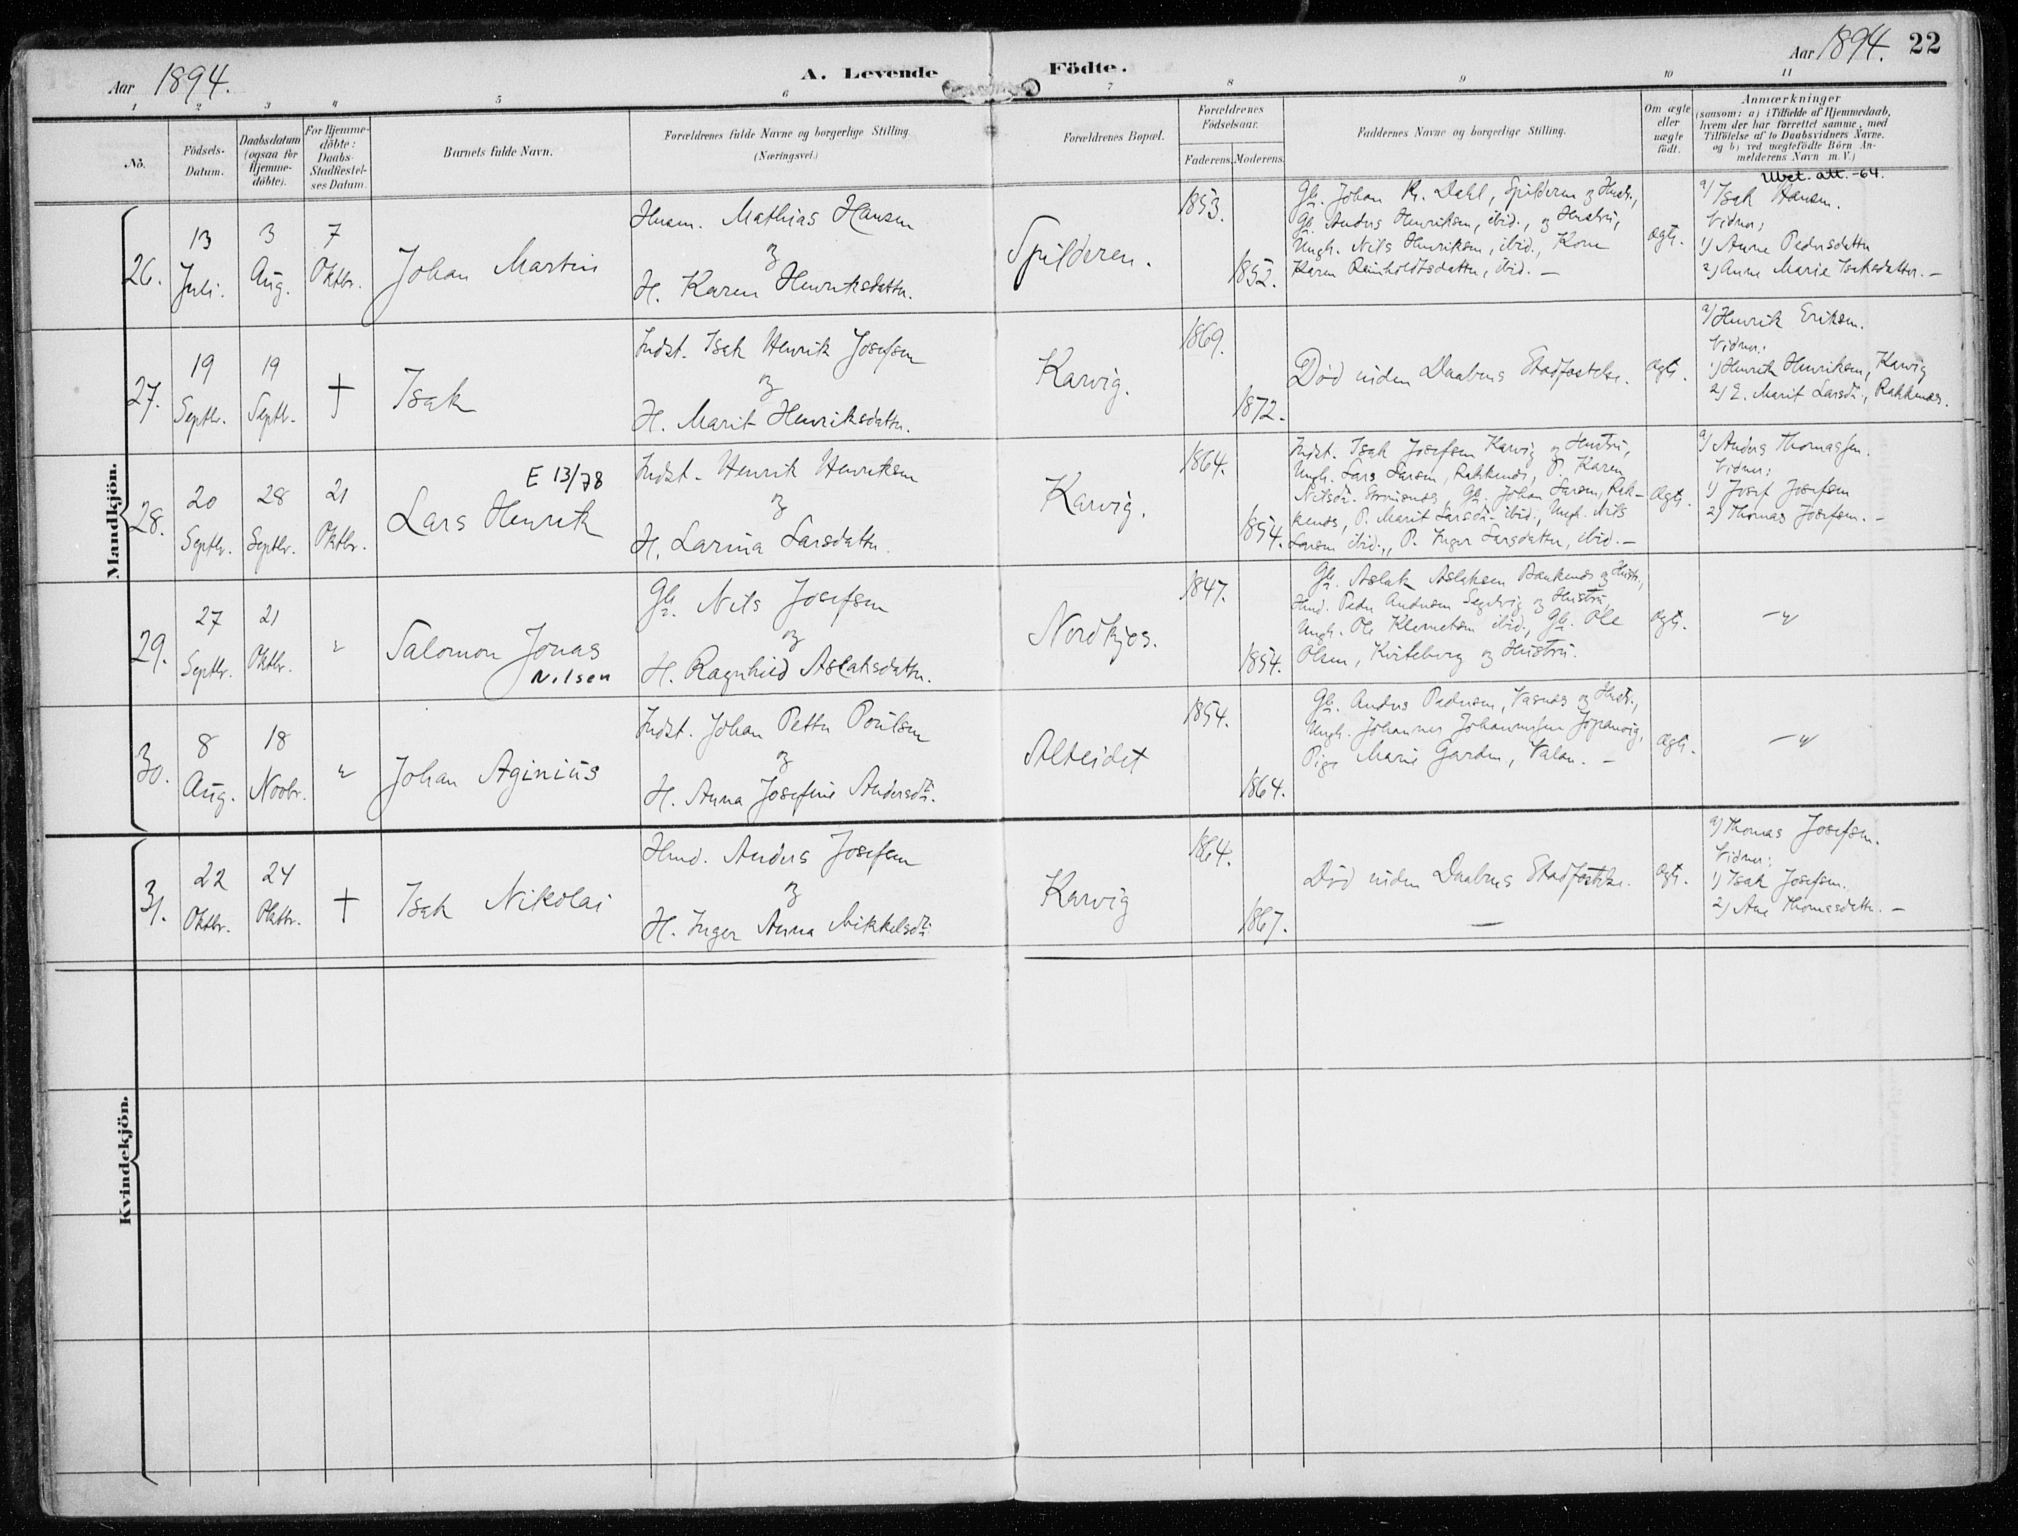 Aar 1894.
A. Levende Födte.
Aar 1894. 22
1 2 3 4 5 6 7 8 9 10 11
Nö.
Födsels-
Datum.
Daabsdatum
(ogsaa for
Hjemme-
döbte).
For Hjemme-
döbte:
Daabs-
Stadfæstel-
ses Datum.
Barnets fulde Navn.
Forældrenes fulde Navne og borgerlige Stilling.
(Næringsvei.)
Forældrenes Bopæl.
Forældrenes
Födselsaar.
Faderens.
Moderens.
Faddernes Navne og borgerlige Stilling.
Om ægte
eller
uægte
födt.
Anmærkninger
(saasom: a) i Tilfælde af Hjemmedaab,
hvem der har forrettet samme, med
Tilföielse af to Daabsvidners Navne.
og b) ved uægtefödte Börn An-
melderens Navn m. V.)
Mandkjön.
26.
13
Juli.
3
Aug.
7
Oktbr.
Johan Martin
Husm. Mathias Hansen
og
H. Karen Henriksdattr.
Spilderen.
1853.
1852.
Gb. Johan Kr. Dahl, Spilderen og Hustr.,
Gb. Anders Henriksen, ibid., og Hustru,
Ungk. Nils Henriksen, ibid., Kone
Karen Reinholdtsdattr, ibid. —
ægte.
Ubet. att. -64.
a) Isak Hansen.
Vidner:
1) Anne Pedersdattr
2) Anne Marie Isaksdattr. —
27.
19
Septbr.
19
Septbr.
†
Isak
Indst. Isak Henrik Josefsen
og
H. Marit Henriksdattr.
Karvig.
1869.
1872.
Død uden Daabens Stadfæstelse.
ægte.
a) Henrik Eriksen.
Vidner:
1) Henrik Henriksen, Karvig
2) E. Marit Larsdtr., Rakkenæs.
28.
20
Septbr.
28
Septbr.
21
Oktbr.
E 13/78
Lars Henrik
Indst. Henrik Henriksen
og
H. Larina Larsdattr.
Karvig.
1864.
1854.
Indst. Isak Josefsen Karvig og Hustru,
Ungk. Lars Larsen, Rakkenæs, P. Karen
Nilsdtr. , Gb. Johan Larsen, Rak-
kenæs, P. Marit Larsdtr. ibid., Ungk. Nils
Larsen ibid., P. Inger Larsdattr, ibid. —
ægte.
a) Anders Thomassen.
Vidner:
1) Josef Josefsen
2) Thomas Josefsen. —
29.
27
Septbr.
21
Oktbr.
"
Salomon Jonas
Nilsen
Gb. Nils Josefsen
og
H. Ragnhild Aslaksdattr.
Nordkjos.
1847.
1854.
Gb. Aslak Aslaksen og Hustr.,
Hmd. Peder Andersen Segelvig og Hustru,
Ungk. Ole Klemetsen ibid., Gb. Ole
Olsen, Kviteberg og Hustru.
ægte.
—"
30.
8
Aug.
18
Novbr.
"
Johan Aginius
Indst. Johan Petter Poulsen
og
H. Anna Josefine Andersdtr.
Alteidet
1854.
1864.
Gb. Anders Pedersen, Vasnæs og Hustr.,
Ungk. Johannes Johannessen ,
Pige Marie Garden, Valan. —
ægte.
—"
Kvindekjön.
31.
22
Oktbr.
24
Oktbr.
†
Isak Nikolai
Hmd. Anders Josefsen
og
H. Inger Anna Mikkelsdtr.
Karvig
1864.
1867.
Død uden Daabens Stadfæstelse.
—
ægte.
a) Thomas Josefsen.
Vidner:
1) Isak Josefsen.
2) Ane Thomasdattr. —